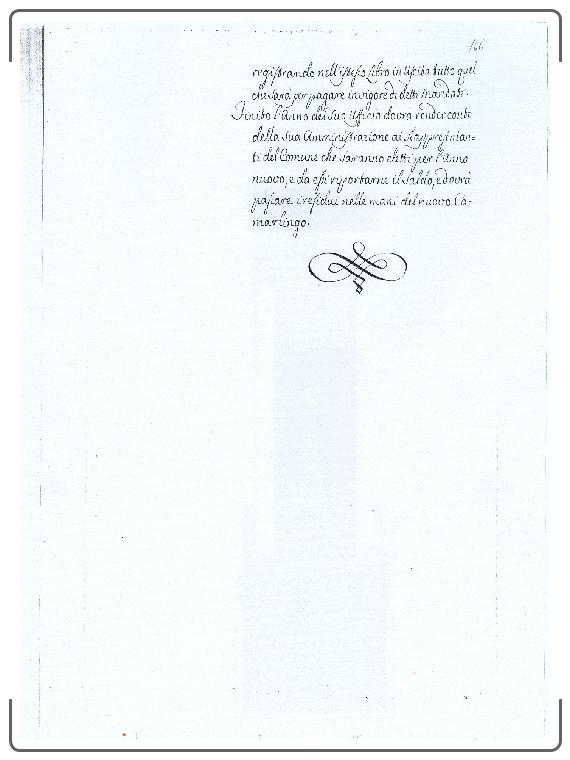 166
registrando nell'istesso Libro in Uscita tutto quel
che sarà per pagare in vigore di detti Mandati.
Finito l'Anno del Suo Uffizio dovrà render conto
della sua Amministrazione ai Rappresentan-
ti del Comune che saranno eletti per l'Anno
nuovo, e da essi riportarne il Saldo, e dovrà
passare i residui nelle mani del nuovo Ca-
marlingo.